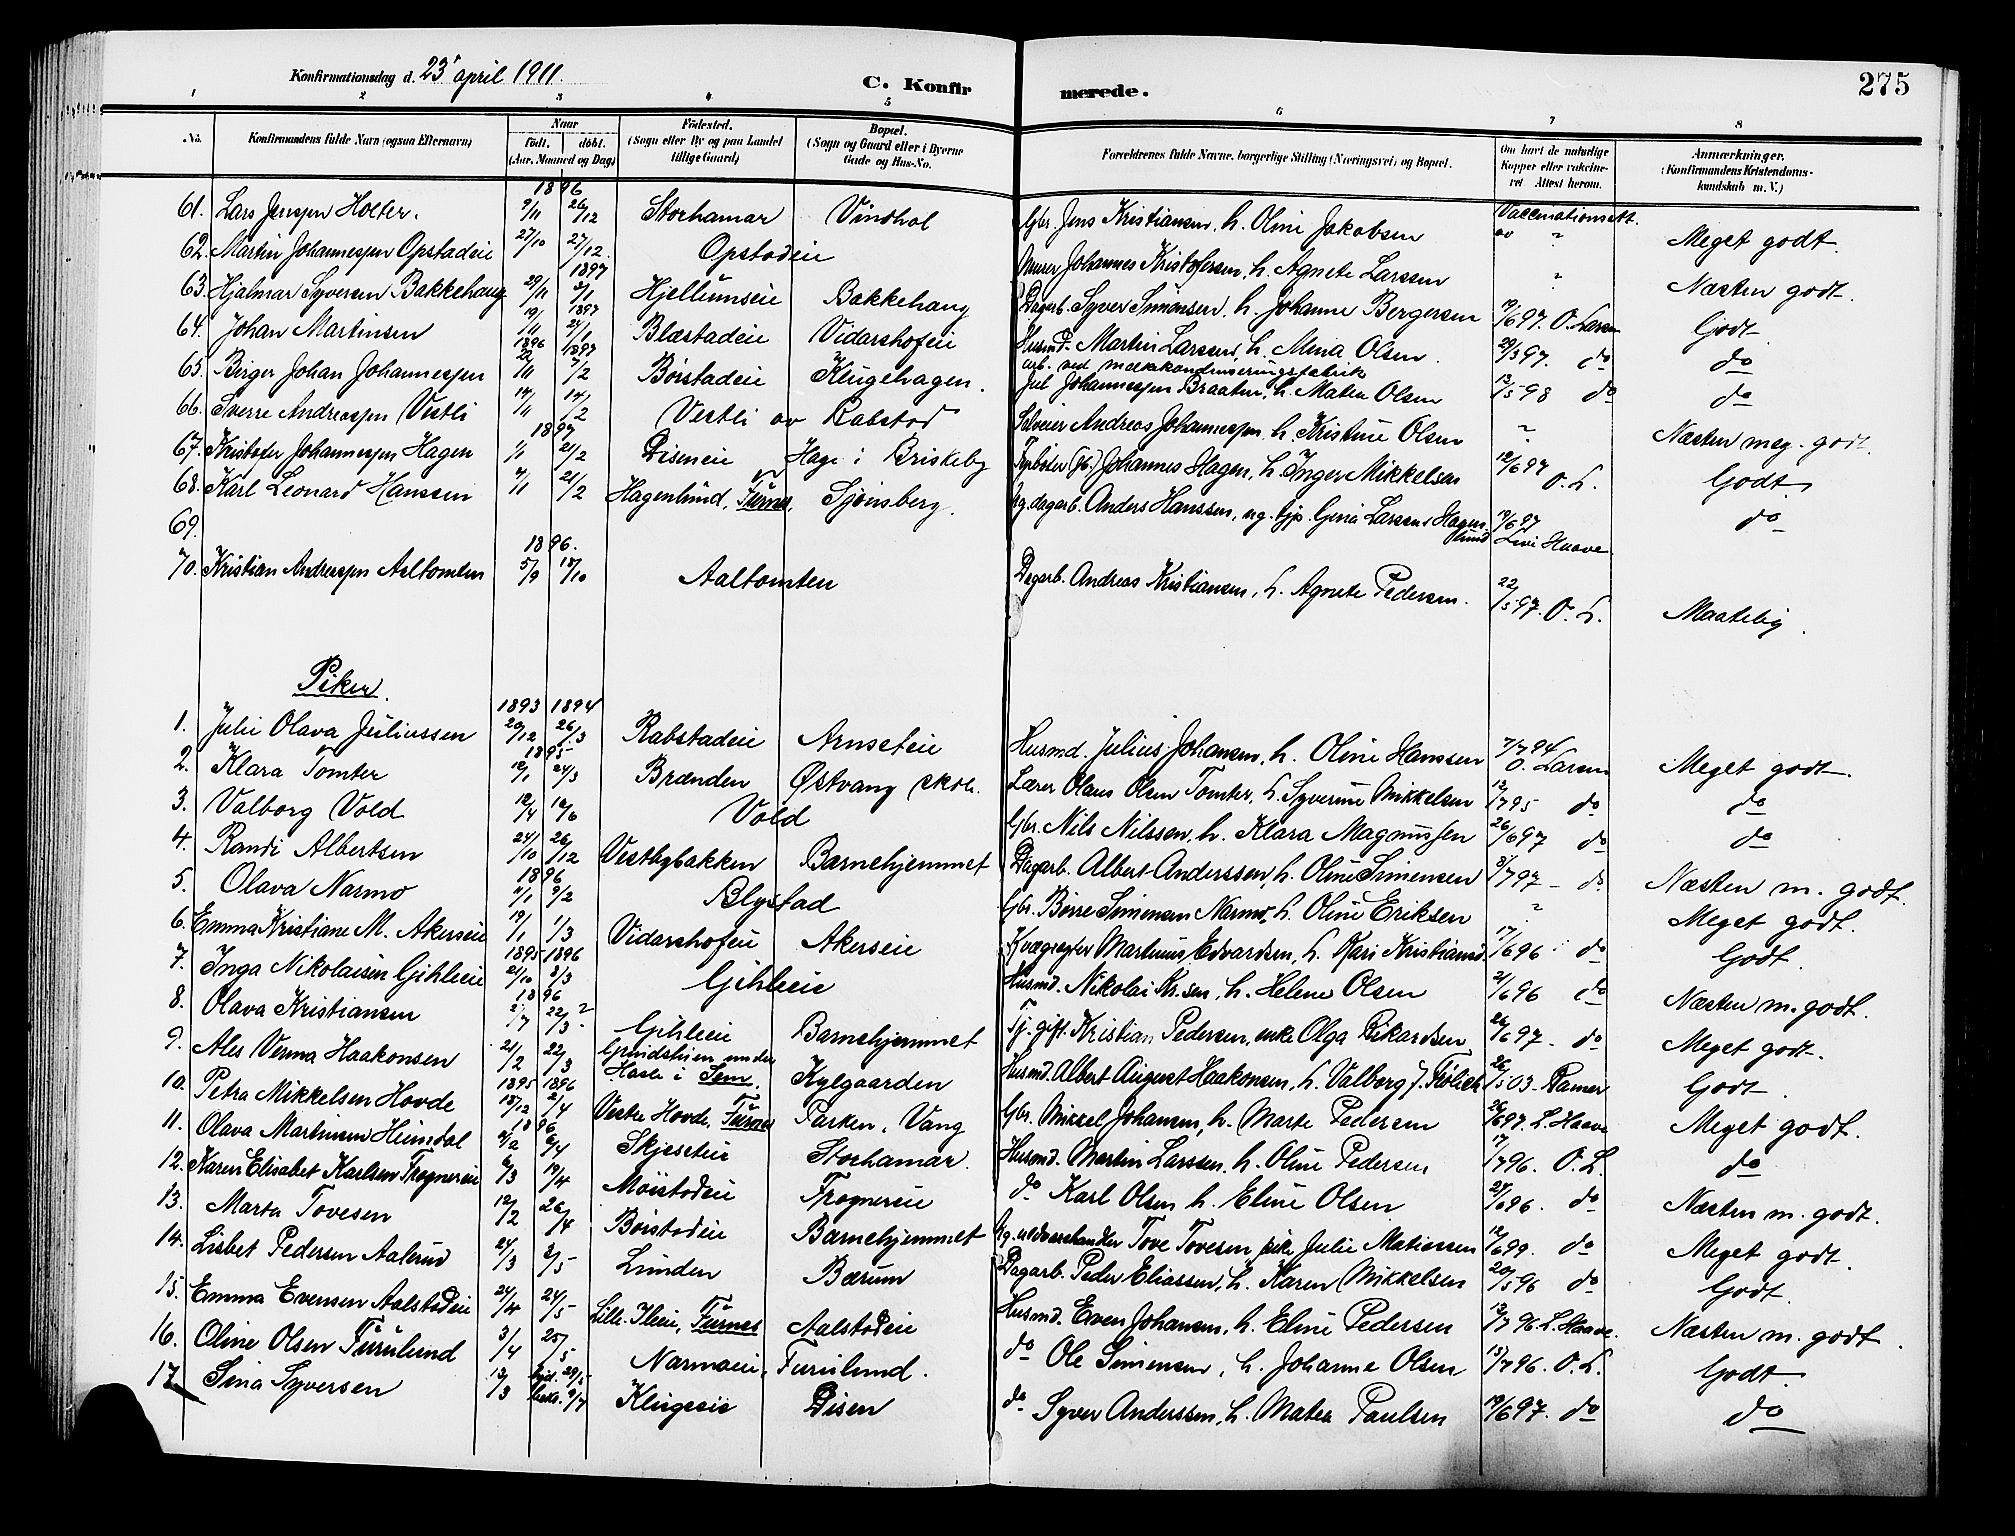 Konfirmationsdag d. 23' april 1911.
C. Konfirmerede.
275
1 2 3 4 5 6 7 8
No. Konfirmandens fulde Navn (ogsaa Efternavn) Naar født. døbt. (Aar, Maaned og Dag) Fødested. (Sogn eller By og paa Landet tillige Gaard) Bopæl. (Sogn og Gaard eller i Byerne Gade og Hus-No. Forældrenes fulde Navne, borgerlige Stilling (Næringsvei) og Bopæl. Om havt de naturlige Kopper eller vakcineret Attest herom. Anmærkninger. (Konfirmandens Kristendomskundskab m. V.)
1896
61. Lars Jenssen Holter. 9/11 26/12 Storhamar Vindhol Gbr. Jens Kristiansen, h. Oline Jakobsen Vaccinationsatt. Meget godt.
62. Martin Johannessen Opstadeie 27/10 27/12 Opstadeie Murer Johannes Kristofersen, h. Agnete Larssen " Næsten godt.
1897
63. Hjalmar Syversen Bakkehaug 29/11 2/1 Hjellumseie Bakkehaug Dagarb. Syver Simonsen, h. Johanne Bergersen 19/6 97. O. Larsen Godt
1897
64. Johan Martinsen 19/11 24/1 Blæstadeie Vidarshofeie Husmd. Martin Larssen, h. Mina Olsen 29/3 97. do do
1896 1897
65. Birger Johan Johannessen 22/11 7/2 Børstadeie Klugehagen. arb. ved mælkekondenseringsfabrik Jul Johannessen Braaten, h. Matea Olsen 13/5 98 do do
66. Sverre Andreassen Vestli 14/11 14/2 Vestli av Rabstad Selveier Andreas Johannessen, h. Kristine Olsen " Næsten meg. godt.
1897
67. Kristofer Johannessen Hagen 1/1 21/2 Diseneie Hage i Briskeby Johannes Hagen, h. Inger Mikkelsen 12/6 97 O. L. Godt
68. Karl Leonard Hanssen 4/1 21/2 Hagenlund, Furnes, Sjønsberg. Ug. dagarb. Anders Hanssen, ug. tjp. Gina Larssen Hagenlund 19/6 97 Levi Haave do
69.
1896.
70. Kristian Andreassen Aaltomten 5/9 18/10 Aaltomten Dagarb. Andreas Kristiansen, h. Agnete Pedersen. 22/5 97. O. L. Maatelig.
Piker.
1893 1894
1. Julie Olava Juliussen 20/12 26/3 Rabstadeie Arnseteie Husmd. Julius Johansen, h. Oline Hanssen 7/7 94 O. Larsen Meget godt.
1895
2. Klara Tomter 12/1 24/3 Brænden Østvang skole. Lærer Olaus Olsen Tomter, h. Syverine Mikkelsen 12/7 95 do do
3. Valborg Vold 12/4 16/6 Vold Gbr. Nils Nilssen, h. Klara Magnussen 26/6 97 do do
4. Randi Albertsen 24/10 26/12 Vestbybakken Barnehjemmet Dagarb. Albert Anderssen, h. Oline Simensen 3/7 97 – do Næsten m. godt.
1896
5. Olava Narmo 4/1 9/2 Blystad Gbr. Børre Simensen Narmo, h. Oline Eriksen " Meget godt.
6. Emma Kristiane M. Akerseie 19/1 1/3 Vidarshofeie Akerseie Kvægrøgter Martinus Edvardsen, h. Kari Kristiansd. 17/6 96 do Godt.
1895 1896
7. Inga Nikolaisen Gihleeie 21/10 8/3 Gihleeie Husmd. Nikolai Kr.sen, h. Helene Olsen 21/6 96 do Næsten m. godt.
1896
8. Olava Kristiansen 22/3? Gihleeie Barnehjemmet Tj. gift. Kristian Pedersen, enke Olga Rikardsen 26/6 97 – do Meget godt.
9. Ales Verma Haakonsen 21/2 22/3 Grindstuen under Hasle i Sem. Kylgaarden Husmd. Albert August Haakonsen, h. Valborg J. Frölich 26/5 03 – Ramer Godt.
1895 1896
10. Petra Mikkelsen Hovde 18/12 2/4 Vestre Hovde, Furnes Parken, Vang Gbr. Mikkel Johansen, h. Marte Pedersen 26/6 97. L. Haave Meget godt.
1896
11. Olava Martinsen Heimdal 4/2 6/4 Skjeseteie Storhamar. Husmd. Martin Larssen, h. Oline Pedersen 17/7 96. O. L. do
12. Karen Elisabet Karlsen Frognereie 6/3 19/4 Møistadeie Frognereie do Karl Olsen h. Eline Olsen 28/6 96. do Næsten m. godt.
13. Marta Tovesen 12/2 26/4 Børstadeie Barnehjemmet Ug. uldvarehandler Tove Tovesen, pike Julie Matiassen 12/6 99. do Meget godt.
14. Lisbet Pedersen Aalerud 24/3 3/5 Lunden Bærum Dagarb. Peder Eliassen, h. Karen Mikkelsen 20/5 96 do Godt.
15. Emma Evensen Aalstadeie 24/4 24/5 Lille-Ileie, Furnes Aalstadeie Husmd. Even Johansen, h. Eline Pedersen 13/7 96. L. Haave. Næsten m. godt.
16. Oline Olsen Furulund 3/4 25/5 Narmoeie, Furulund. do Ole Simensen, h. Johanne Olsen 13/7 96. O. L. Godt.
17. Sina Syversen 13/3 hjd. 29/5 9/7 Klugeeie Disen do Syver Anderssen, h. Matea Paulsen 19/6 97. do do